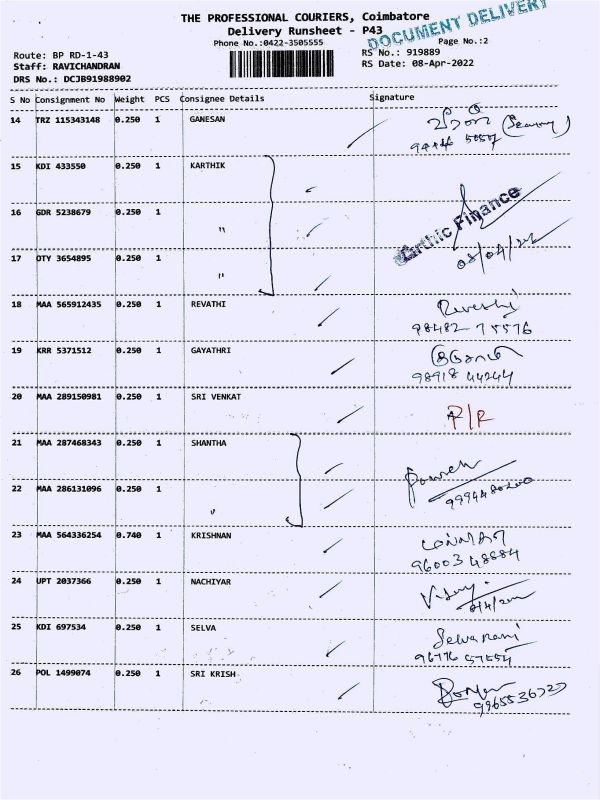 THE PROFESSIONAL COURIERS, Coimbatore
Delivery Runsheet - P43
DOCUMENT DELIVERY
Phone No.:0422-3505555
Page No.:2
Route: BP RD-1-43
RS No.: 919889
Staff: RAVICHANDRAN
RS Date: 08-Apr-2022
DRS No.: DCJB91988902
S No Consignment No Weight PCS Consignee Details Signature
14 TRZ 115343148 0.250 1 GANESAN
15 KDI 433550 0.250 1 KARTHIK
16 GDR 5238679 0.250 1 "
Karthic Finance
17 OTY 3654895 0.250 1 "
08/04/22
18 MAA 565912435 0.250 1 REVATHI Revathi
98482 75576
19 KRR 5371512 0.250 1 GAYATHRI
98918 44244
20 MAA 289150981 0.250 1 SRI VENKAT R/R
21 MAA 287468343 0.250 1 SHANTHA
22 MAA 286131096 0.250 1 "
9994480200
23 MAA 564336254 0.740 1 KRISHNAN
96003 48884
24 UPT 2037366 0.250 1 NACHIYAR
25 KDI 697534 0.250 1 SELVA Selvarani
96776 57554
26 POL 1499074 0.250 1 SRI KRISH
9965536723